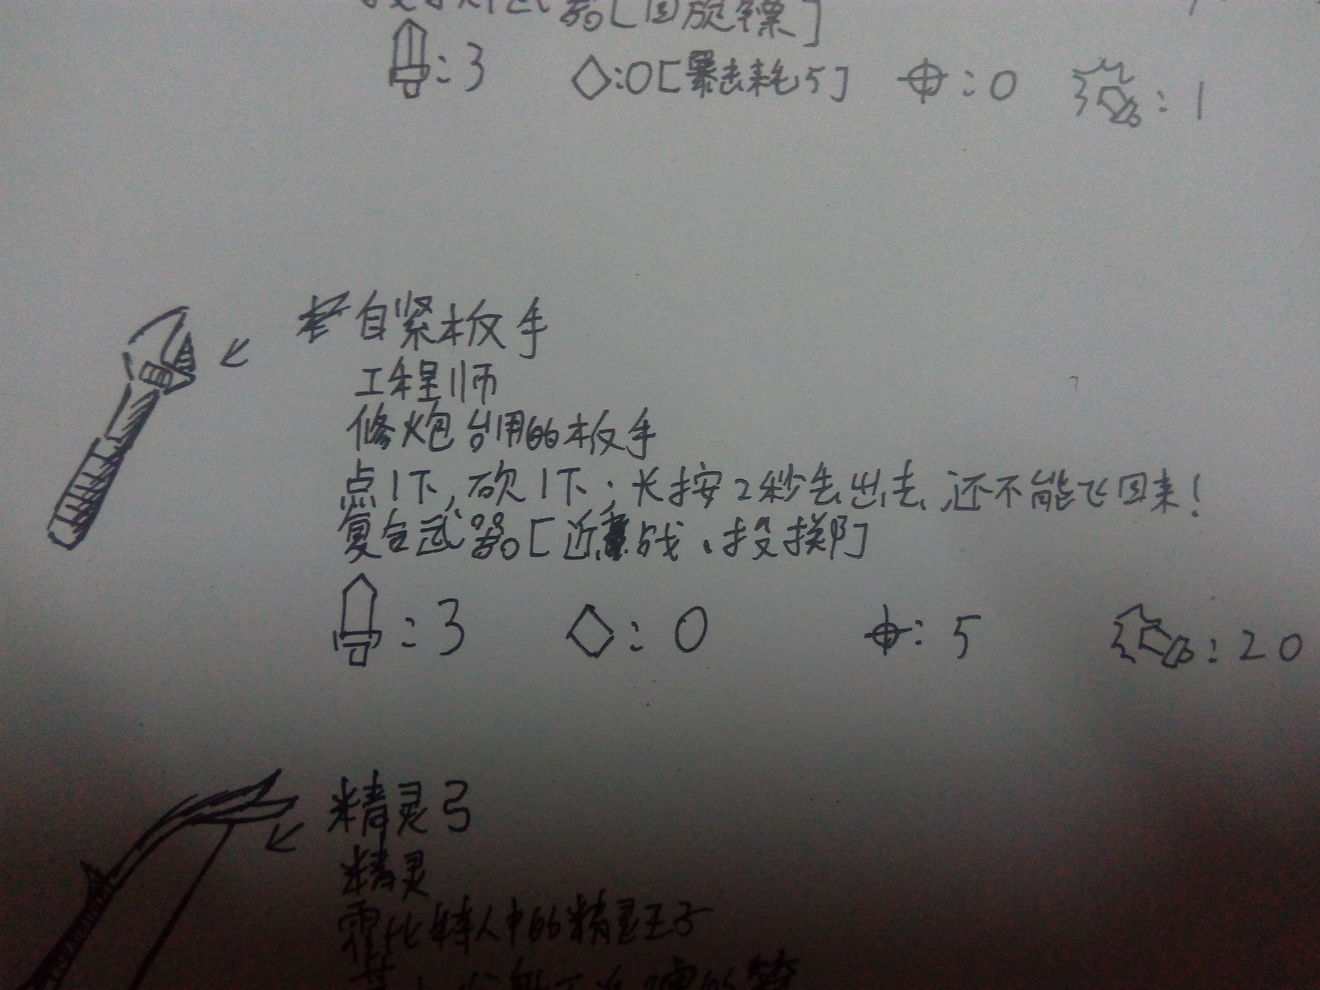 武器[回旋镖]
:3 :0[暴击耗5] :0 :1
自紧板手
工程师
修炮台用的板手
点1下,砍1下;长按2秒丢出去,还不能飞回来!
复合武器[近战、投掷]
:3 :0 :5 :20
精灵弓
精灵
霍比特人中的精灵王子